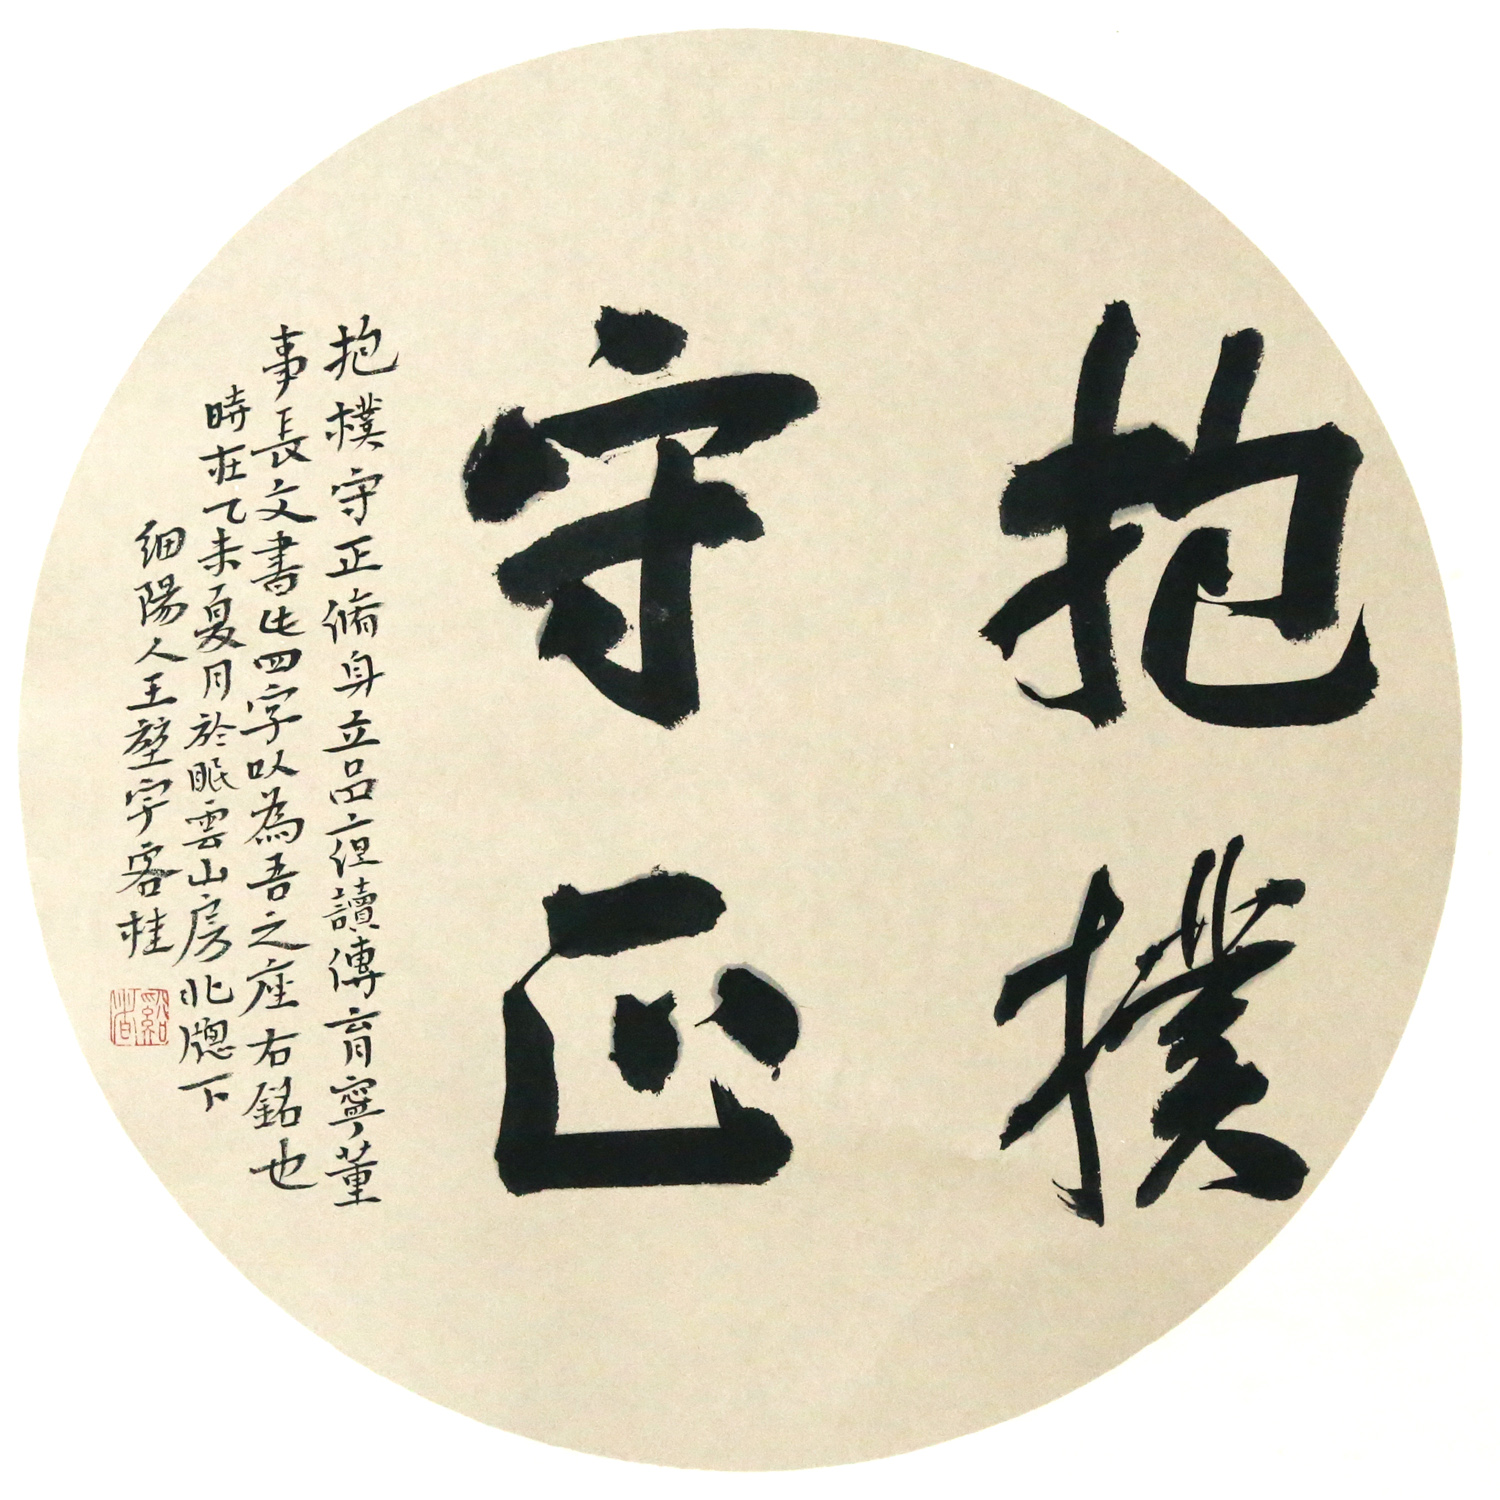 抱樸
守正
抱樸守正脩身立品座讀傳育寧董
事長文書此四字以為吾之座右銘也
時在乙未夏月於眠雲山房北牕下
細陽人王壑字客桂